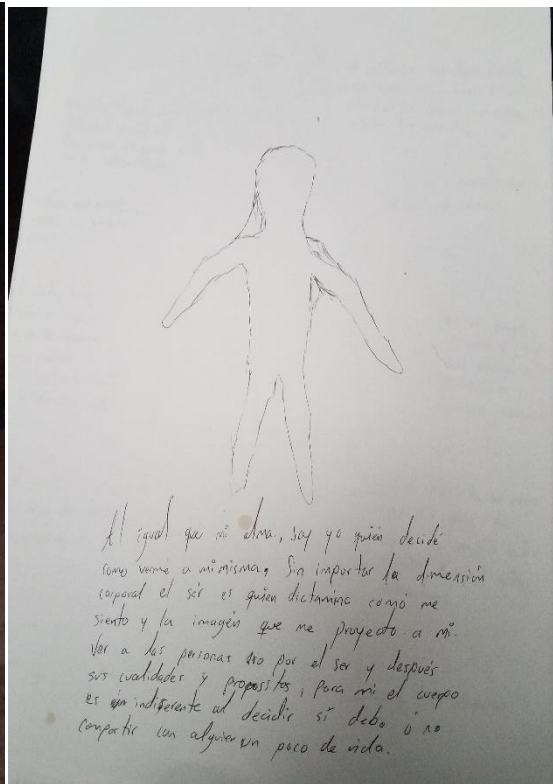 Al igual que mi alma, soy yo quién decidé
como verme a mi misma, Sin importar la dimensión
corporal el sér es quien dictamina comó me
siento y la imagén que me proyecto a mí.
Ver a las personas por el ser y después
sus cualidades y propositos, para mi el cuerpo
es indiferente al decidir sí debo ó no
compartir con alguien un poco de vida.